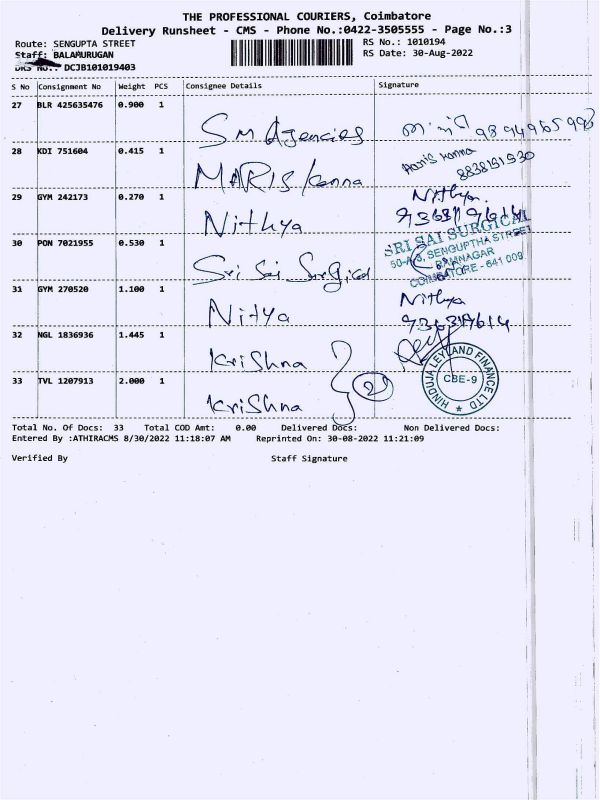 THE PROFESSIONAL COURIERS, Coimbatore
Delivery Runsheet - CMS - Phone No.:0422-3505555 - Page No.:3
Route: SENGUPTA STREET
RS No.: 1010194
Staff: BALAMURUGAN
RS Date: 30-Aug-2022
DRS No.: DCJB101019403
S No Consignment No Weight PCS Consignee Details Signature
27 BLR 425635476 0.900 1
SM Agencies
28 KDI 751604 0.415 1
MARIS Kanna
Maris Kanna
8838151530
29 GYM 242173 0.270 1
Nithya
Nithya
30 PON 7021955 0.530 1
Sri Sai Surgical
SRI SAI SURGICAL
50-A/3, SENGUPTHA STREET
RAMNAGAR
COIMBATORE - 641 009
31 GYM 270520 1.100 1
Nitya
Nithya
32 NGL 1836936 1.445 1
Krishna
33 TVL 1207913 2.000 1
Krishna
HINDUJA LEYLAND FINANCE LTD
CBE-9
Total No. Of Docs: 33 Total COD Amt: 0.00 Delivered Docs: Non Delivered Docs:
Entered By :ATHIRACMS 8/30/2022 11:18:07 AM Reprinted On: 30-08-2022 11:21:09
Verified By Staff Signature